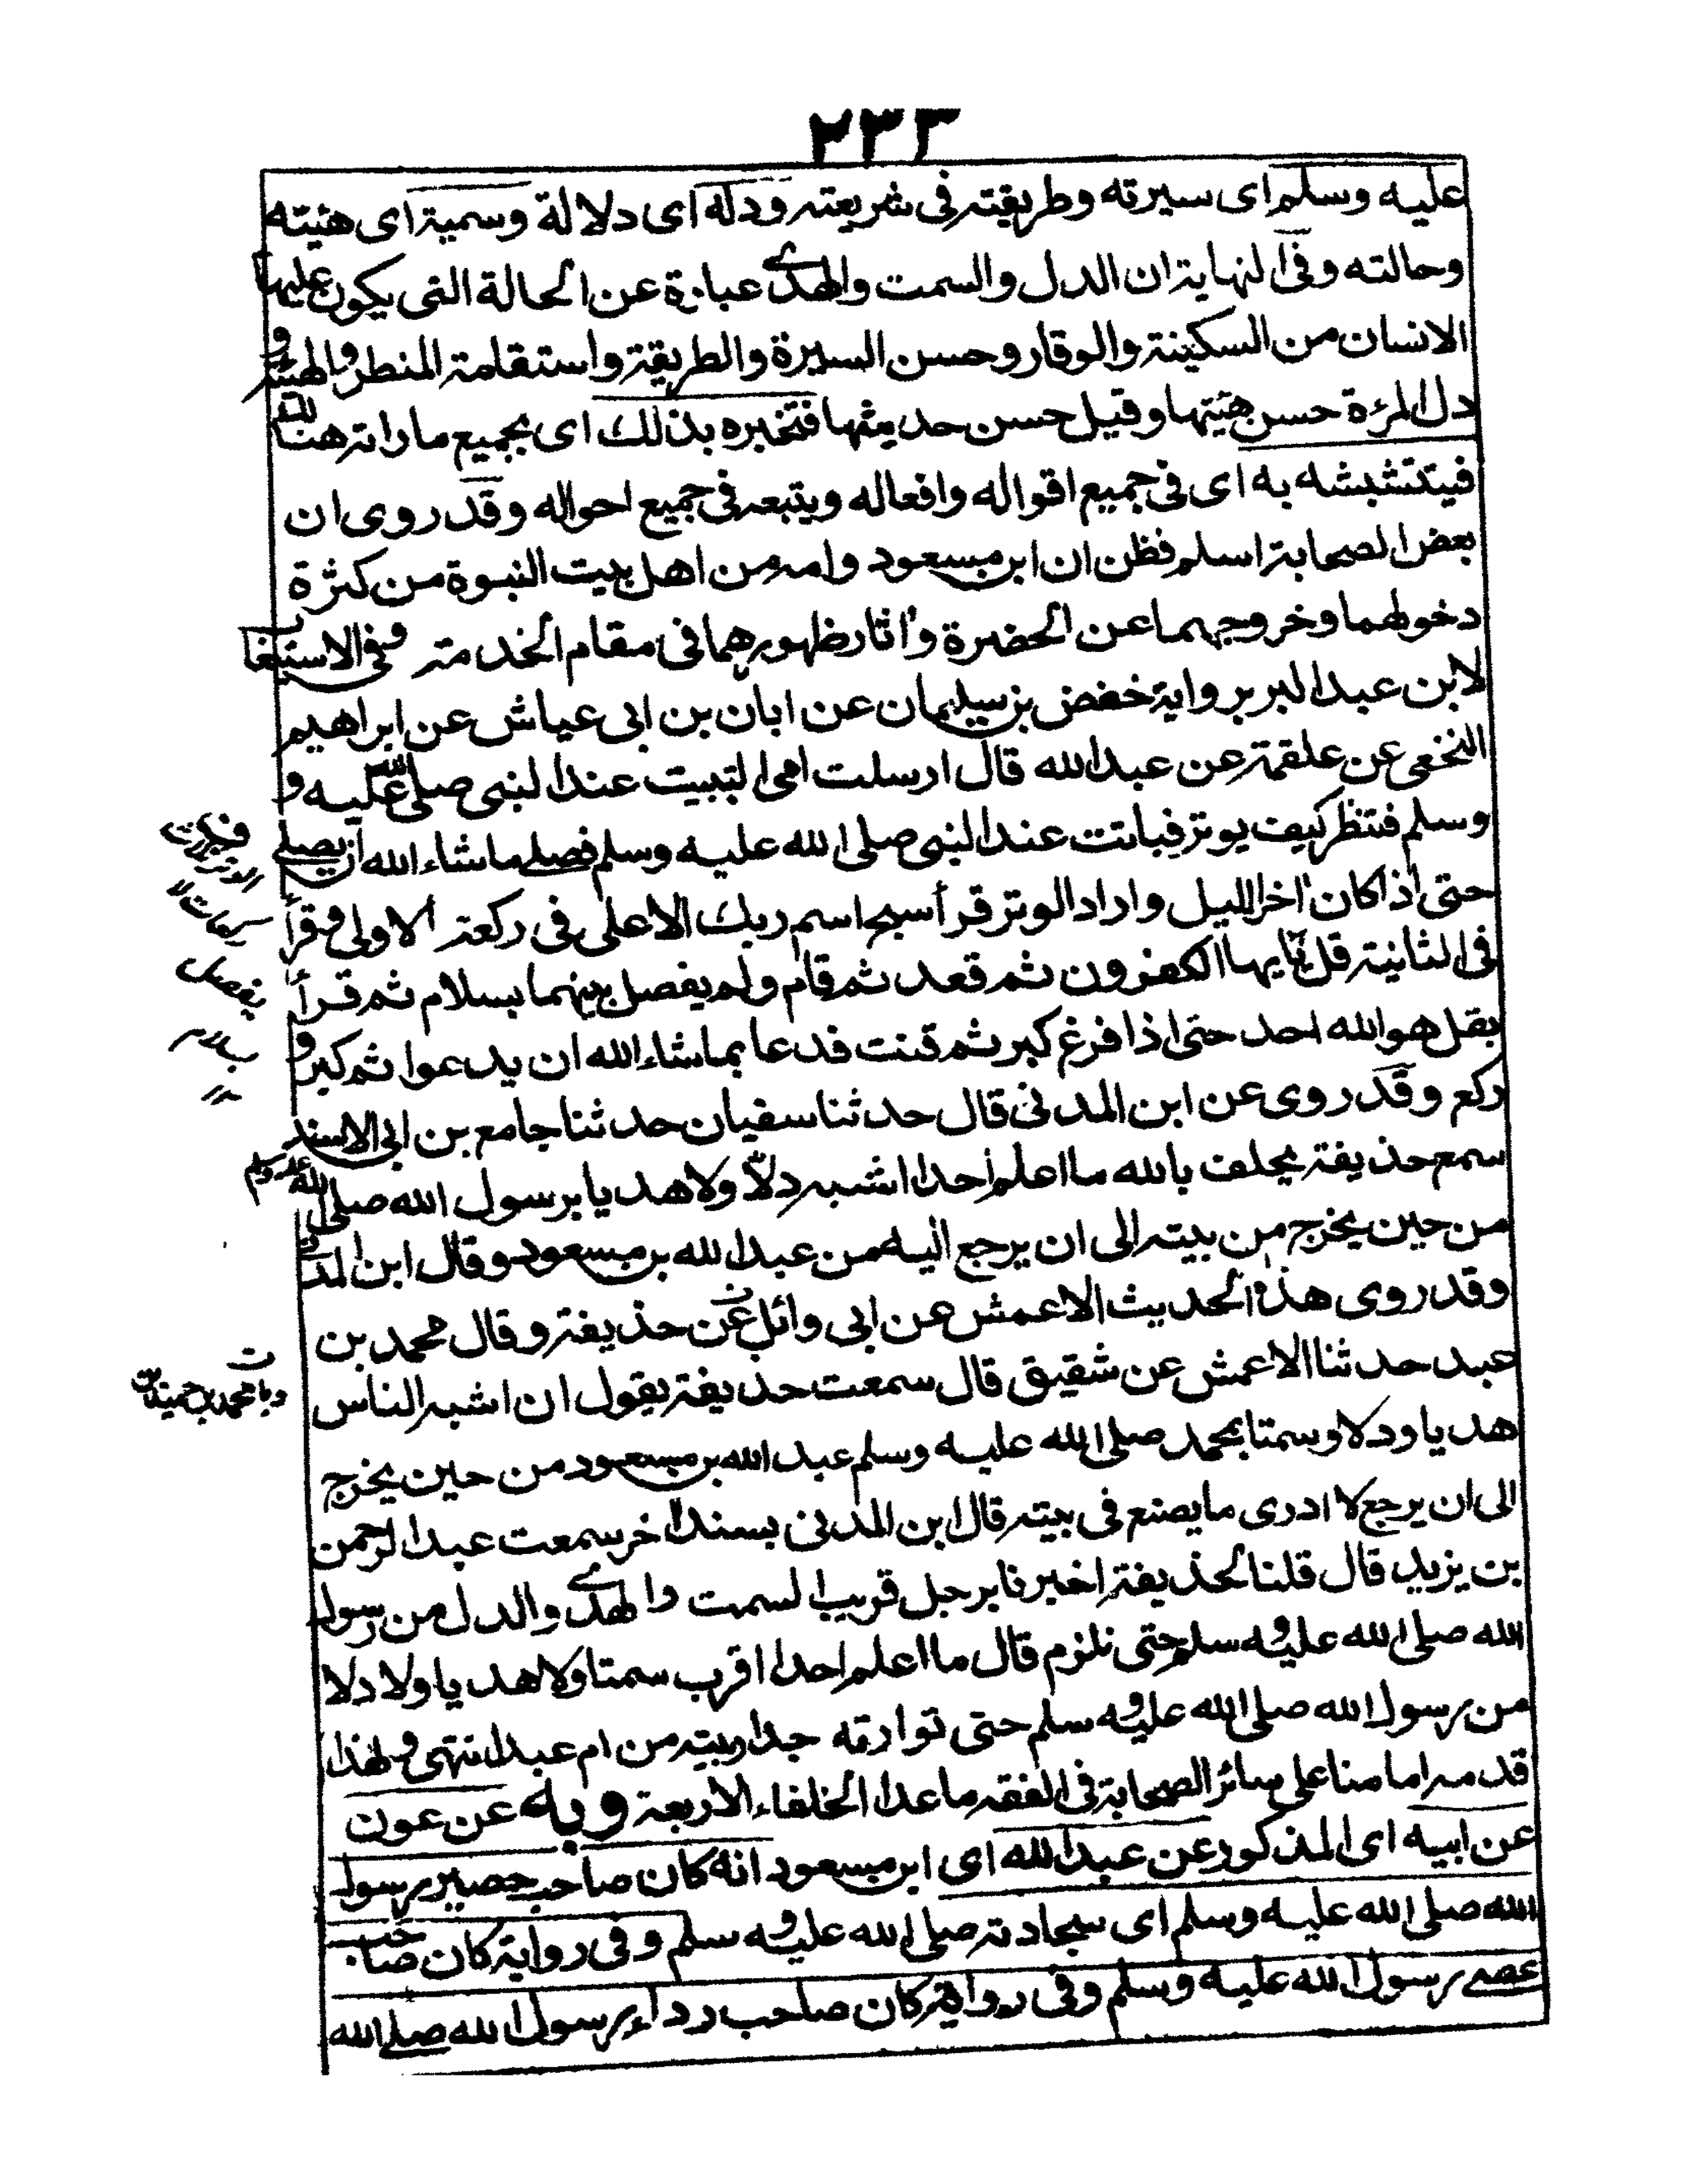 ٢٣٣
عليه وسلم اى سيرته وطريقته فى شريعته ودله اى دلالة وسمية اى هئيته
وحالته وفى النهاية ان الدل والسمت والهدى عبارة عن الحالة التى يكون عليها
الانسان من السكينة والوقار وحسن السيرة والطريقة واستقامة المنظر والهئية و
دل المرءة حسن هئيتها وقيل حسن حديثها فتخبره بذلك اى بجميع ما راته هنالك
فيتشبه به اى فى جميع اقواله وافعاله ويتبعه فى جميع احواله وقد روى ان
بعض الصحابة اسلم فظن ان ابن مسعود وامه من اهل بيت النبوة من كثرة
دخولهما وخروجهما عن الحضرة واثار ظهورهما فى مقام الخدمة وفى الاستيعاب
لابن عبد البر برواية خفض بن سليمان عن ابان بن ابى عياش عن ابراهيم
النخعى عن علقمة عن عبد الله قال ارسلت امى لتبيت عند النبى صلى الله عليه و
وسلم فتنظر كيف يوتر فباتت عند النبى صلى الله عليه وسلم فصلے ما شاء الله ان يصلے
حتى اذا كان اخر الليل واراد الوتر قرأ سبح اسم ربك الاعلى فى ركعة الاولى وقرأ
فى الثانية قل يايها الكفرون ثم قعد ثم قام ولم يفصل بينهما بسلام ثم قرأ
بقل هو الله احد حتى اذا فرغ كبر ثم قنت فدعا بما شاء الله ان يدعوا ثم كبر و
ركع وقد روى عن ابن المدنى قال حدثنا سفيان حدثنا جامع بن ابى الاسند
سمع حذيفة يحلف بالله ما اعلم احدا اشبه دلًا ولا هديا برسول الله صلى الله عليه وسلم
من حين يخرج من بيته الى ان يرجع اليه من عبد الله بن مسعود وقال ابن المدنى
وقد روى هذا الحديث الاعمش عن ابى وائل عن حذيفة وقال محمد بن
عبد حدثنا الاعمش عن شقيق قال سمعت حذيفة يقول ان اشبه الناس
هديا ودلا وسمتا بمحمد صلى الله عليه وسلم عبد الله بن مسعود من حين يخرج
الى ان يرجع لا ادرى ما يصنع فى بيته قال ابن المدنى بسند اخر سمعت عبد الرحمن
بن يزيد قال قلنا لحذيفة اخبرنا برجل قريب السمت والهدى والدل من رسول
الله صلى الله عليه وسلم حتى نلزم قال ما اعلم احدا اقرب سمتا ولا هديا ولا دلا
من رسول الله صلى الله عليه وسلم حتى توارته جدار بيته من ام عبد انتهى ولهذا
قدمه امامنا على سائر الصحابة فى الفقه ما عدا الخلفاء الاربعة وبه عن عون
عن ابيه اى المذكور عن عبد الله اى ابن مسعود انه كان صاحب حصير رسول
الله صلى الله عليه وسلم اى سجادته صلى الله عليه وسلم وفى رواية كان صاحب
عصے رسول الله عليه وسلم وفى رواية كان صاحب رداء رسول الله صلے الله
الوتر بثلاث
ركعات لا
يفصل
بسلام